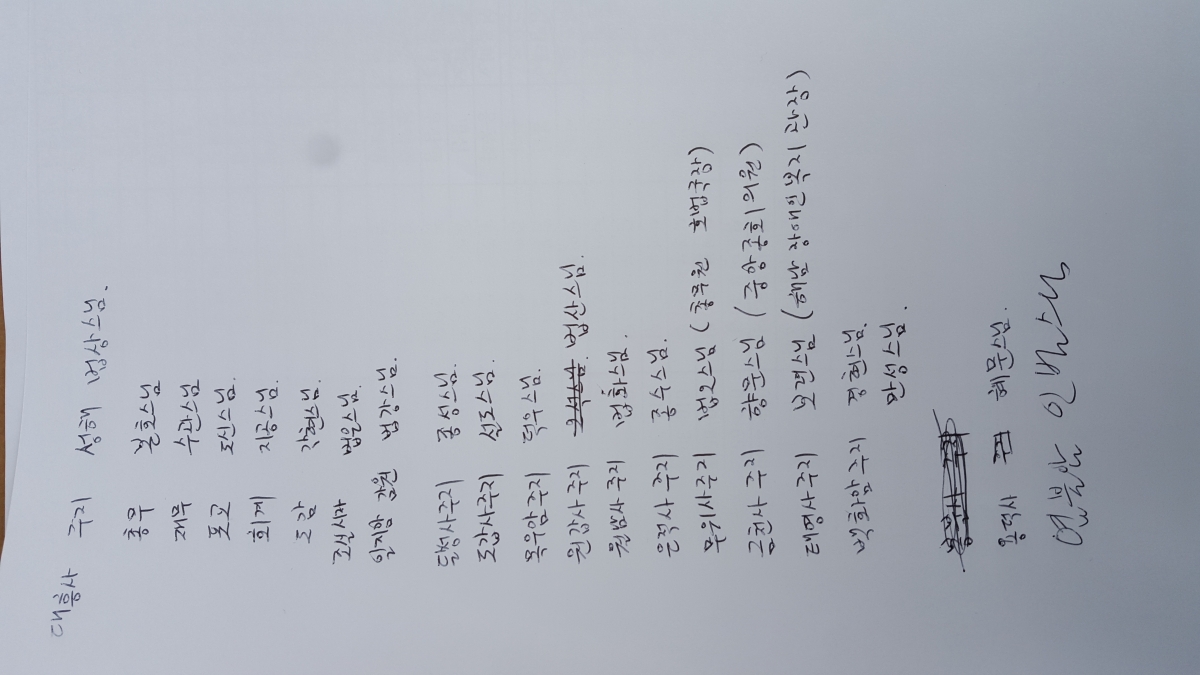 대흥사 주지 성해 법상스님.
총무 월호스님
재무 수관스님
포교 도신스님.
회계 지공스님.
도감 각현스님.
조실시자 법은스님.
일지암 암원 법강스님.
달성사주지 종성스님.
도갑사주지 선도스님.
목우암주지 덕우스님.
원갑사주지 법산스님.
원남사주지 법화스님.
은적사주지 종수스님.
무위사주지 법오스님 (총무원 호법국장)
금천사주지 향문스님 (중앙종회의원)
태영사주지 보면스님 (해남장애인복지관장)
백화암주지 정현스님.
만성스님.
용덕사 혜문스님.
연봉암 인법스님